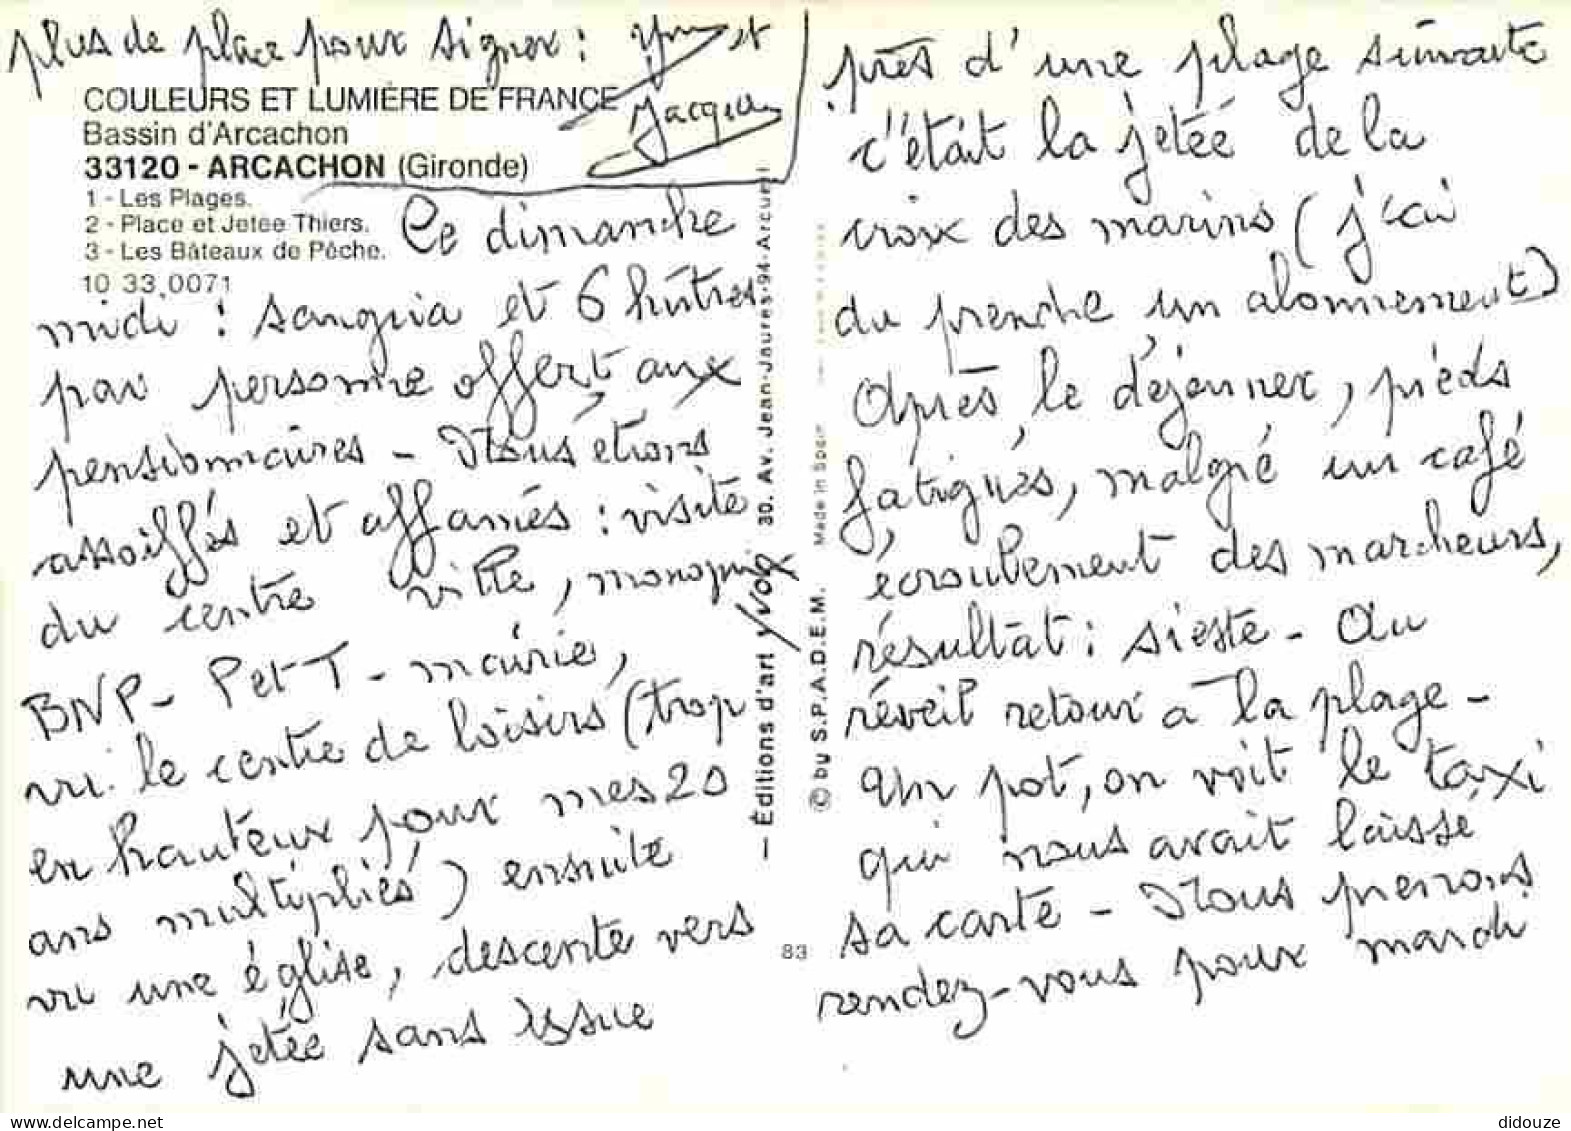 plus de place pour signer : Yvon et
Jacqueline
COULEURS ET LUMIÈRE DE FRANCE
Bassin d'Arcachon
33120 - ARCACHON (Gironde)
1 - Les Plages.
2 - Place et Jetée Thiers.
3 - Les Bâteaux de Pêche.
10 33.0071
Ce dimanche
midi : sangria et 6 huîtres
par personne offert aux
pensionnaires - Nous étions
assoiffés et affamés : visite
du centre ville, monoprix
BNP - P et T - mairie,
vu le centre de loisirs (trop
en hauteur pour mes 20
ans multipliés) ensuite
vu une église, descente vers
une jetée sans issue
— Éditions d'art YVON 30, Av. Jean-Jaurès-94-Arcueil
© by S.P.A.D.E.M. Made in Spain
83
près d'une plage suivante
c'était la jetée de la
croix des marins (j'ai
du prendre un abonnement)
Après le déjeuner, pieds
fatigués, malgré un café
écroulement des marcheurs,
résultat : sieste - Au
réveil retour à la plage -
Un pot, on voit le taxi
qui nous avait laissé
sa carte - Nous prenons
rendez-vous pour mardi
didouze